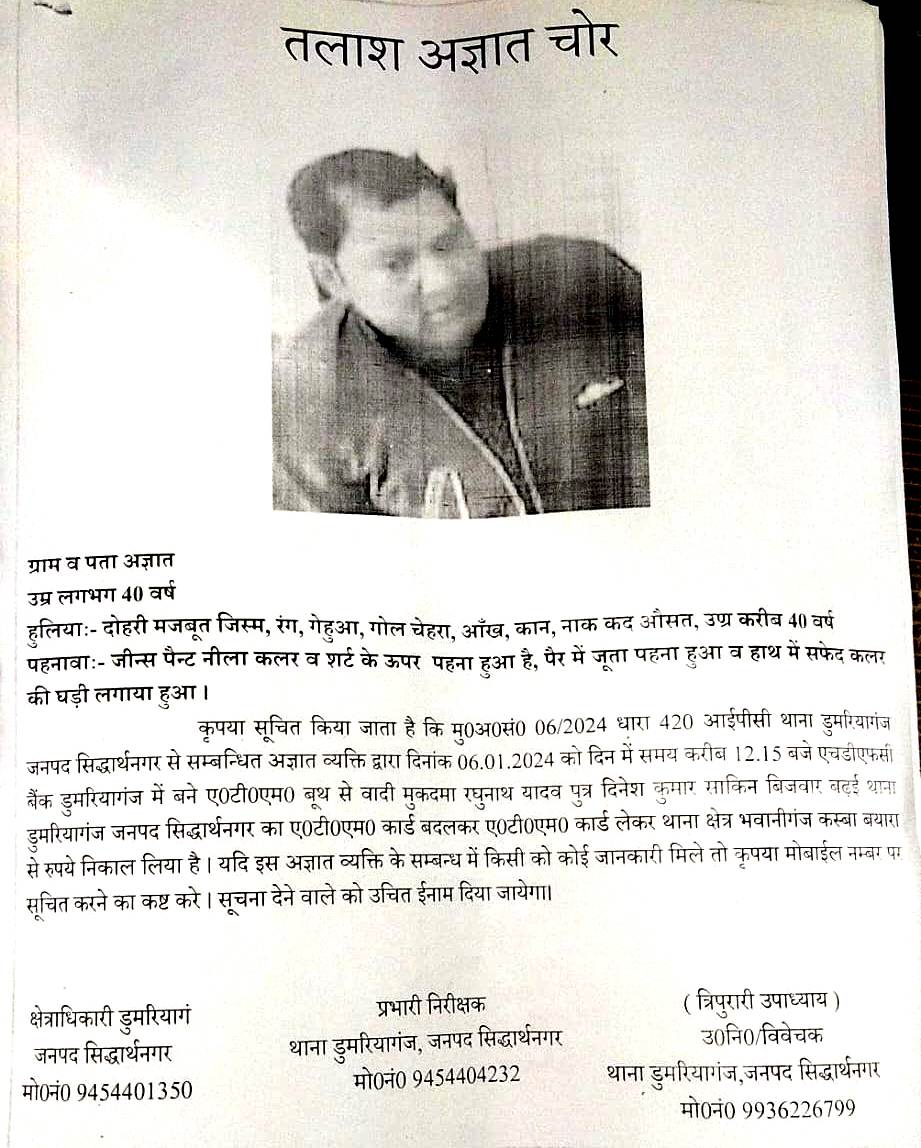 तलाश अज्ञात चोर
ग्राम व पता अज्ञात
उम्र लगभग 40 वर्ष
हुलियाः- दोहरी मजबूत जिस्म, रंग, गेहुआ, गोल चेहरा, आँख, कान, नाक कद औसत, उम्र करीब 40 वर्ष
पहनावाः- जीन्स पैन्ट नीला कलर व शर्ट के ऊपर पहना हुआ है, पैर में जूता पहना हुआ व हाथ में सफेद कलर
की घड़ी लगाया हुआ ।
कृपया सूचित किया जाता है कि मु0अ0सं0 06/2024 धारा 420 आईपीसी थाना डुमरियागंज
जनपद सिद्धार्थनगर से सम्बन्धित अज्ञात व्यक्ति द्वारा दिनांक 06.01.2024 को दिन में समय करीब 12.15 बजे एचडीएफसी
बैंक डुमरियागंज में बने ए0टी0एम0 बूथ से वादी मुकदमा रघुनाथ यादव पुत्र दिनेश कुमार साकिन बिजवार बढ़ई थाना
डुमरियागंज जनपद सिद्धार्थनगर का ए0टी0एम0 कार्ड बदलकर ए0टी0एम0 कार्ड लेकर थाना क्षेत्र भवानीगंज कस्बा बयारा
से रुपये निकाल लिया है । यदि इस अज्ञात व्यक्ति के सम्बन्ध में किसी को कोई जानकारी मिले तो कृपया मोबाईल नम्बर पर
सूचित करने का कष्ट करे । सूचना देने वाले को उचित ईनाम दिया जायेगा।
क्षेत्राधिकारी डुमरियागं
जनपद सिद्धार्थनगर
मो0नं0 9454401350
प्रभारी निरीक्षक
थाना डुमरियागंज, जनपद सिद्धार्थनगर
मो0नं0 9454404232
( त्रिपुरारी उपाध्याय )
उ0नि0/विवेचक
थाना डुमरियागंज,जनपद सिद्धार्थनगर
मो0नं0 9936226799